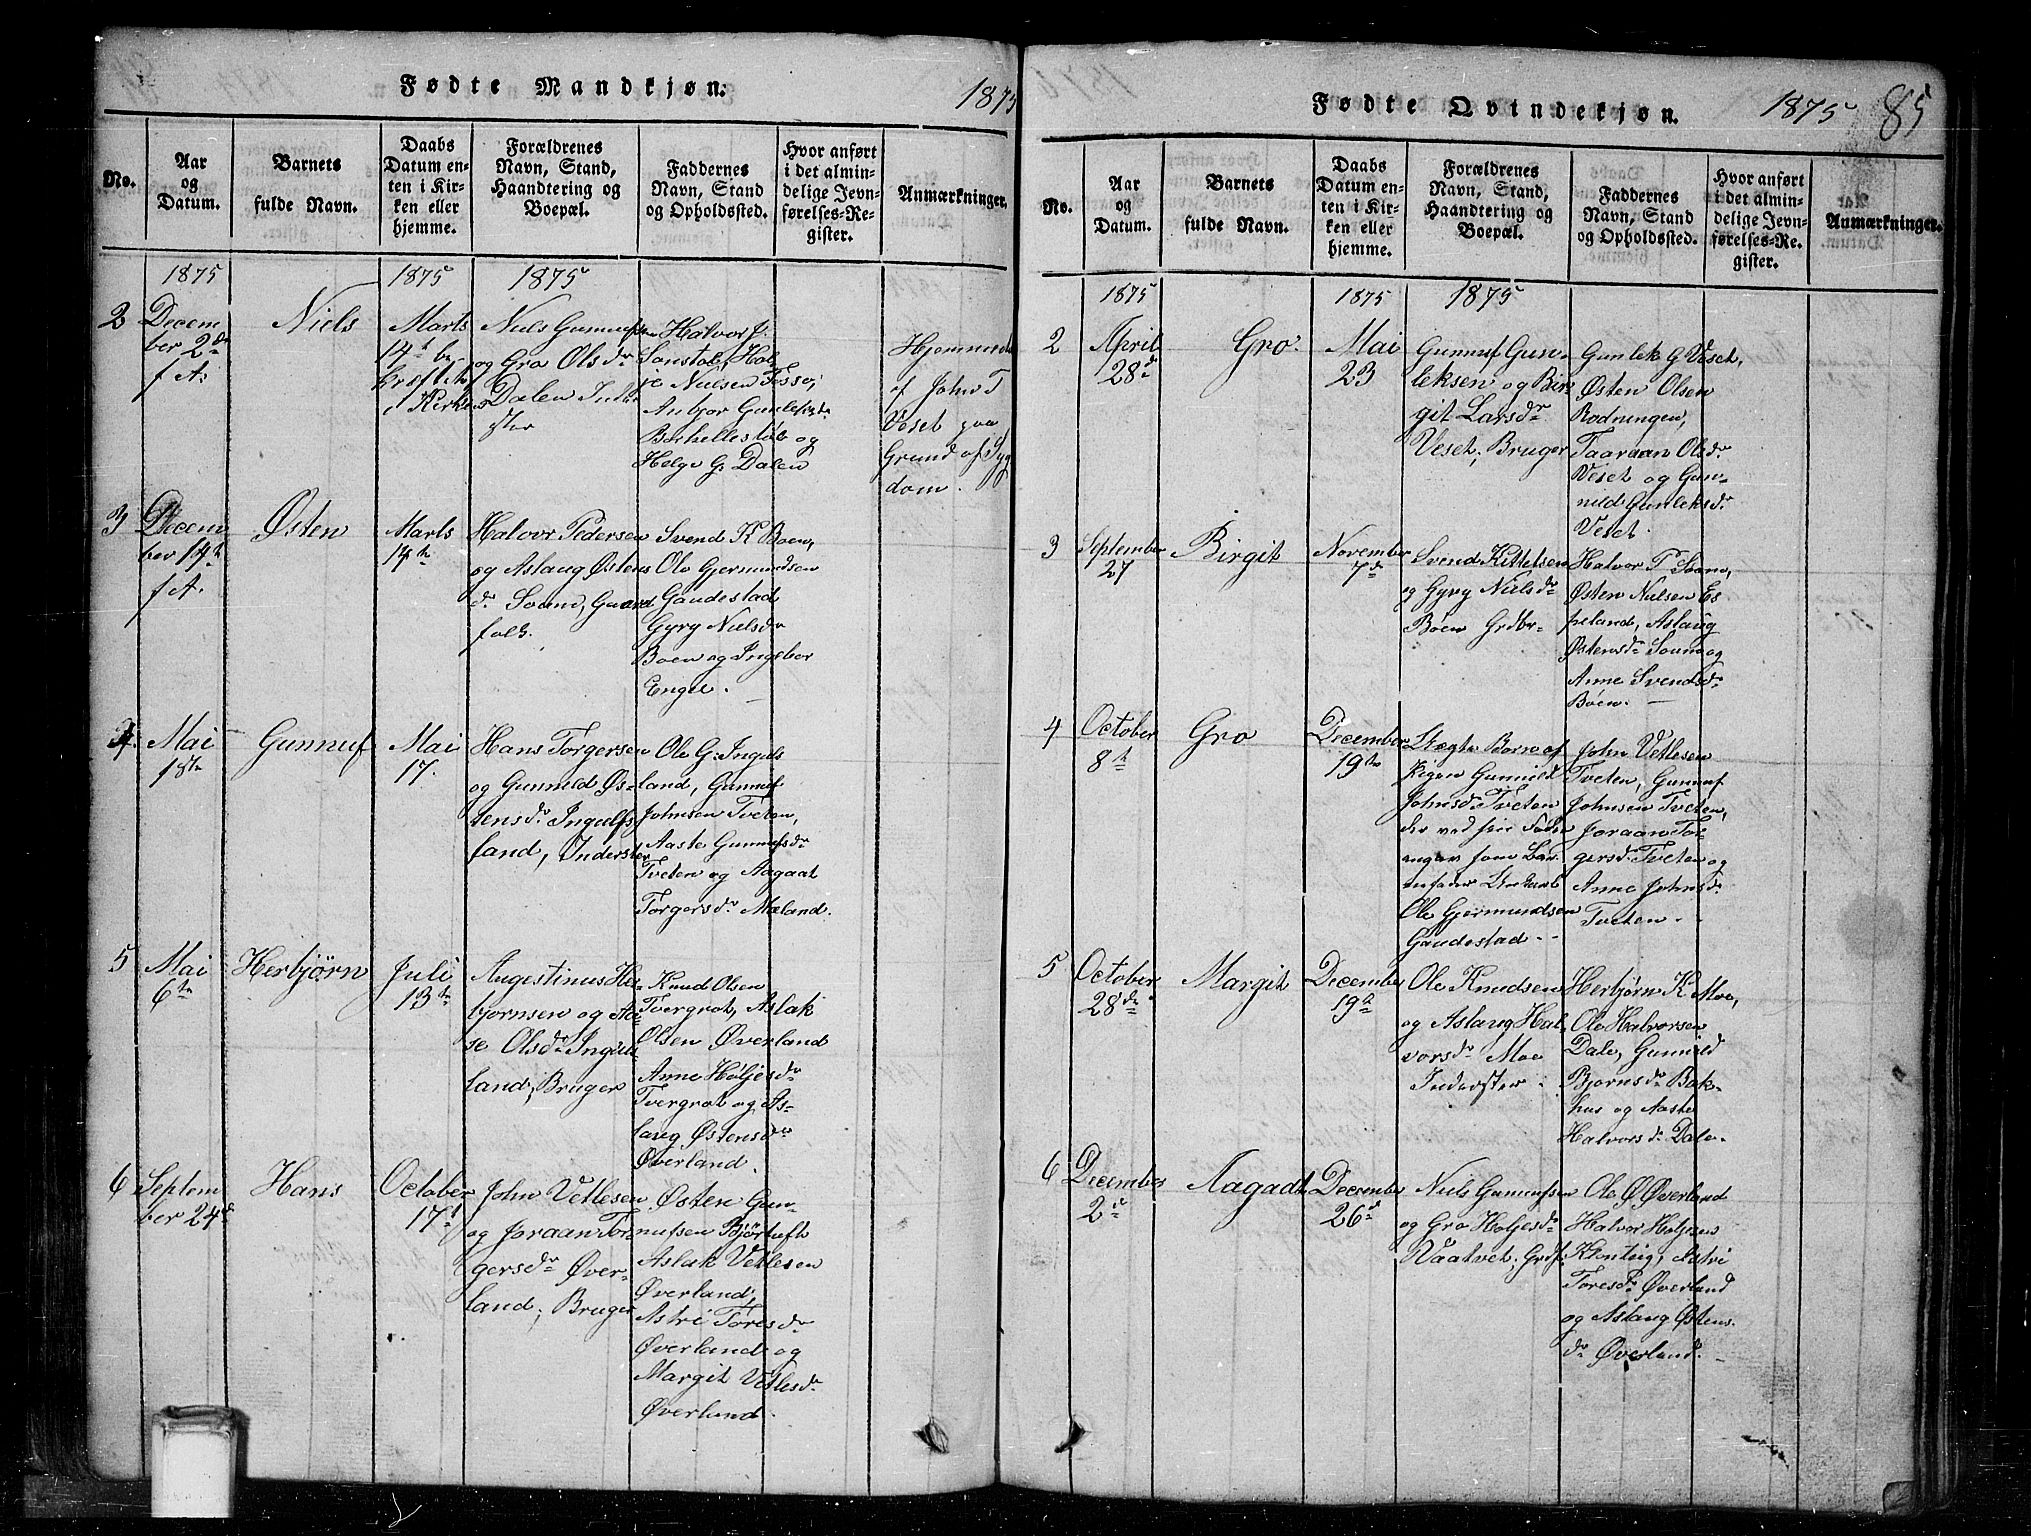 Fødte Mandkjøn.
1875
No.
Aar
og
Datum.
Barnets
fulde Navn.
Daabs
Datum en-
ten i Kir-
ken eller
hjemme.
Forældrenes
Navn, Stand,
Haandtering og
Boepæl.
Faddernes
Navn, Stand
og Opholdssted.
Hvor anført
i det almin-
delige Jevn-
førelses-Re-
gister.
Anmærkninger.
1875
1875
1875
2
Decem
ber 2de
f A.
Niels
Marts
14th
i Kirken
Niels Gunnufs
og Gro Olsdr
Dalen
Halvor J.
Nielsen
Anbjør
og
Helge G. Dalen
Hjemme
af John T
Veset paa
Grund af Syg
dom.
3
Decem
ber 14th
f A.
Østen
Marts
14th
Halvor Pedersen
og Aslaug Østens
dr Soum, Gaard
folk.
Svend K Boen,
Ole Gjermundsen
Gaudestad
Gyry Nielsdr
Boen og Ingebor
Enge.
4
Mai
1ste
Gunnuf
Mai
17.
Hans Torgersen
og Gunnild Øs-
tensdr Ingulfs
land, Inderster
Ole G. Inguls
land, Gunnuf
Johnsen Tveten,
Aaste Gunnufsdr
Tveten og Aagaat
Torgersdr Mæland.
5
Mai
6te
Herbjørn
Juli
13te
Augestinus Her-
bjornsen og Aa-
se Olsdr Inguls
land, Bruger
Knud Olsen
Tvergrot, Aslak
Olsen Øverland
Anne Holjesdr
Tvergrot og As-
laug Østensdr
Øverland.
6
Septem
ber 24de
Hans
October
17d
John Vetlesen
og Joraan Tor
gersdr Øver-
land; Bruger
Østen Gun-
nufsen Bjørtuft
Aslak Vetlesen
Øverland,
Astri Toresdr
Øverland og
Margit Vetlesdr
Øverland.
Fødte Qvindekjøn.
1875
85
No.
Aar
og
Datum.
Barnets
fulde Navn.
Daabs
Datum en-
ten i Kir-
ken eller
hjemme.
Forældrenes
Navn, Stand,
Haandtering og
Boepæl.
Faddernes
Navn, Stand
og Opholdssted.
Hvor anført
i det almin-
delige Jevn-
førelses-Re-
gister.
Anmærkninger.
1875
1875
1875
2
April
28de
Gro.
Mai
23
Gunnuf Gun-
leksen og Bir
git Larsdr
Veset; Bruger
Gunlek G Veset,
Østen Olsen
Rodningen,
Taaraan Olsdr
Veset og Gun-
nild Gunleksdr
Veset.
3
September
27
Birgit
November
7de
Svend Kittelsen
og Gyry Nielsdr
Böen Grdbr-
Halvor P Soum,
Østen Nielsen Es
peland, Aslaug
Østensdr Soum og
Anne Svendsdr
Böen.
4
October
8th
Gro
December
19te
Uægte Barn af
Pigen Gunnild
Johnsdr Tveten
Ole Gjermundsen
Gaudestad
John Vetlesen
Tveten, Gunnuf
Johnsen Tveten,
Joraan Tor-
gersdr Tveten og
Anne Johnsdr
Tveten.
5
October
28de
Margit
December
19th
Ole Knudsen
og Aslaug Hal-
vorsdr Moe
Inderster
Herbjørn K Moe,
Ole Halvorsen
Dale, Gunnild
Bjornsdr Bak-
hus og Aaste
Halvorsdr Dale.
6
December
2de
Aagadt
December
26de
Niels Gunnufsen
og Gro Holjesdr
Vaatvet; Grdf.
Ole Ø Øverland
Halvor Holjens
Klentvig, Astri
Toresdr Øverland
og Aslaug Østens
dr Øverland.